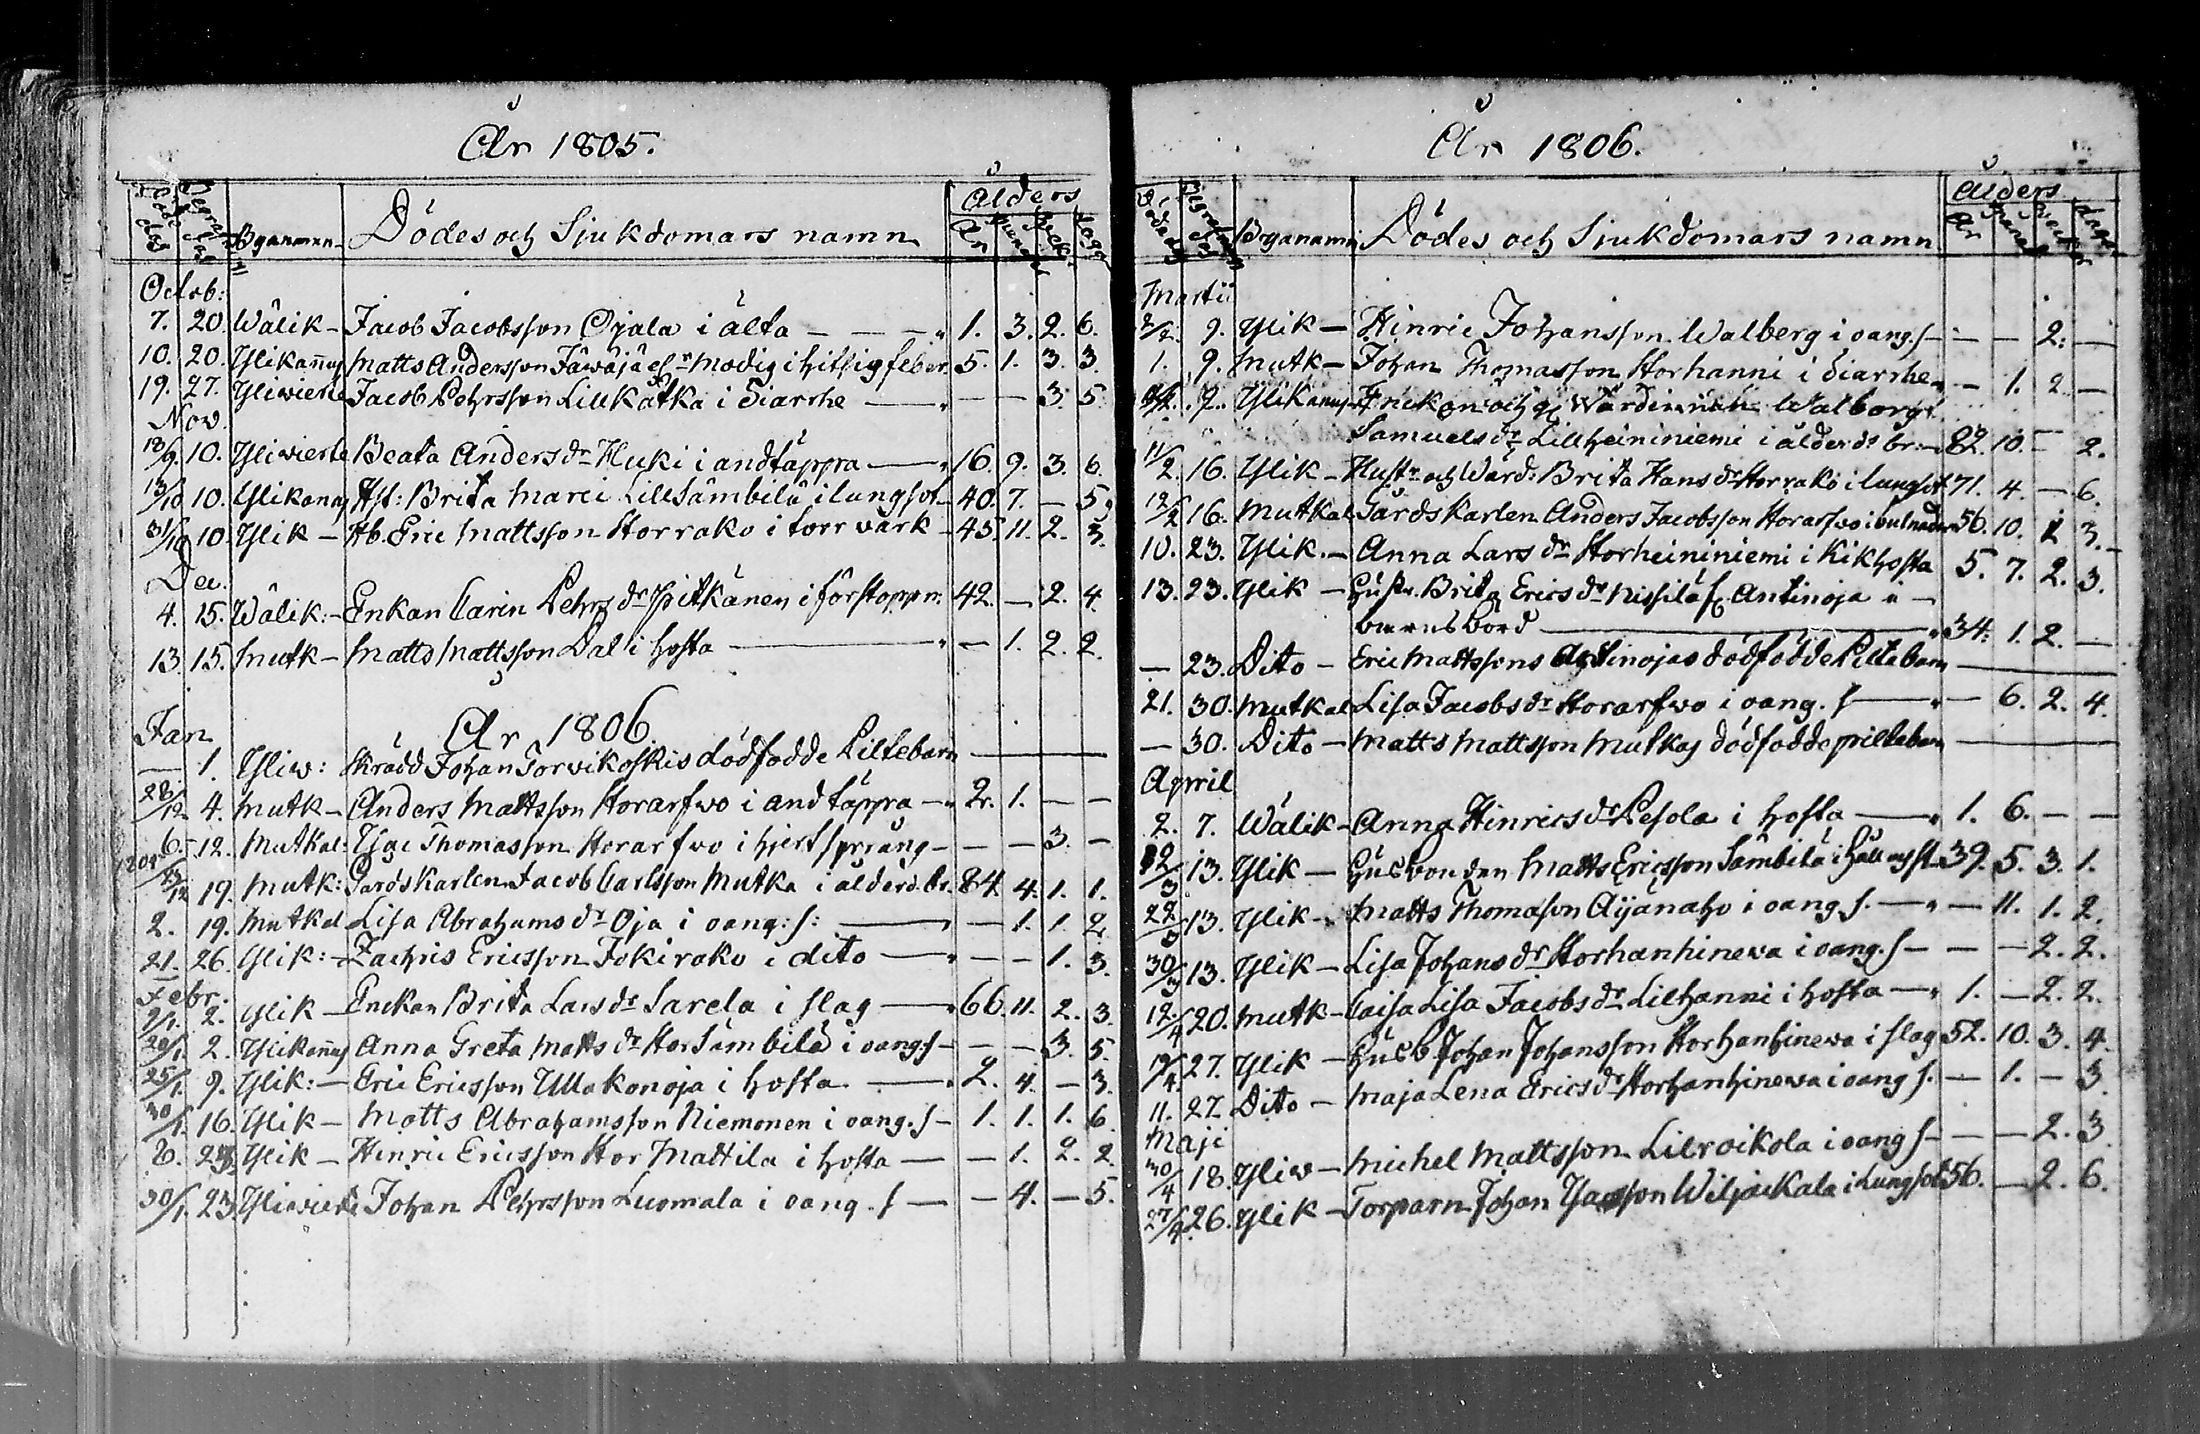 År 1805.
Döde dag Begrafn: dag Bynamn Dödes och Sjukdomars namn Ålders År Månad Veckor Dagar
Octob:
7. 20. Wälik - Jacob Jacobsson Ojala i älta - - - 1. 3. 2. 6.
10. 20. Ylikan̄us Matts Andersson Jäwäjä el:r Modig i hitsig feber 5. 1. 3. 3.
19. 27. Ylivierte Jacob Pehrsson Lillkätkä i diarrhe - - - 3. 5.
Nov.
10. Ylivierte Beata Anders dr Huki i andtäppa - 16. 9. 3. 6.
13/10 10. Ylikanus Hst: Brita Marci Lillsämbilä i lungsot - 40. 7. - 5.
31/10 10. Ylik - Hb. Eric Mattsson Storrako i torrvärk - 45. 11. 2. 3.
Dec.
4. 15. Wälik: - Enkan Carin Pehrs dr Pitkänen i förstoppn. 42. - 2. 4.
13. 15. Mutk - Matts Mattsson Dal i hosta - - 1. 2. 2.
År 1806.
Jan
- 1. Yliw: Skrädd Johan Torvikoskis dödfödde Piltebarn -
28/12 4. Mutk - Anders Mattsson Storarfwo i andtäppa - 2. 1. - -
6. 12. Mutkal: Thomasson Storarfwo i hjertsprång - - - 3. -
19. Mutk: Gårdskarlen Jacob Carlsson Mutka i ålderd. br. 84. 4. 1. 1.
2. 19. Mutkal Lisa Abrahams dr Oja i oang: s: - - 1. 1. 2.
21. 26. Ylik: - Zachris Ericsson Jokirako i dito - - - 1. 3.
Febr.
9/1. 2. Ylik - Enckan Brita Lars dr Sarela i slag - 66. 11. 2. 3.
20/1. 2. Ylikan̄us Anna Greta Matts dr Storsämbilä i oang. s - - - 3. 5.
25/1. 9. Ylik: - Eric Ericsson Ullakonoja i hosta - 2. 4. - 3.
30/1. 16. Ylik - Matts Abrahamsson Niemonen i oang. s - 1. 1. 1. 6.
23. Ylik - Hinric Ericsson Stor Mattila i hosta - - 1. 2. 2.
30/1. 23. Ylivierte Johan Pehrsson Luomala i oang. s - - 4. - 5.
År 1806.
Döde dag Begrafn: dag Bynamn Dödes och Sjukdomars namn Ålders År Månad Veckor Dagar
Martii
9. Ylik - Hinric Johansson Walberg i oang. s - - - 2. -
1. 9. Mutk - Johan Thomasson Storhanni i diarrhe - - 1. 2. -
9. Ylikanus Enckan och Walborg
Samuels dr Lillheininiemi i ålderds br: - 82. 10. - 2.
11/2 16. Ylik - Hustr och Wärd: Brita Hans dr Storrako i lungsot 71. 4. - 6.
12/2 16. Mutkal Gårdskarlen Anders Jacobsson Storarfwo i 56. 10. 1. 3.
10. 23. Ylik. - Anna Lars dr Storheininiemi i Kikhosta 5. 7. 2. 3.
13. 23. Ylik - Hustr. Brita Erics dr Nissilä f. Antinoja -
barnsbörd - 34. 1. 2. -
- 23. Dito - Eric Mattssons Antinojas dödfödde Piltebarn -
21. 30. Mutkal Lisa Jacobs dr Storarfwo i oang. s - - 6. 2. 4.
- 30. Dito - Matts Mattsson Mutkas dödfödde piltebarn -
April
2. 7. Wälik - Anna Hinrics dr Pesola i hosta - 1. 6. - -
13. Ylik - Husbonden Matts Ericsson Sämbilä i 39. 5. 3. 1.
22/3 13. Ylik - Matts Thomasson Äijänaho i oang. s. - - 11. 1. 2.
30/3 13. Ylik - Lisa Johans dr Storhanhinewa i oang. s - - - 2. 2.
12/4 20. Mutk - Caisa Lisa Jacobs dr Lillhanni i hosta - 1. - 2. 2.
19/4. 27. Ylik - Husb Johan Johansson Storhanhinewa i slag 52. 10. 3. 4.
11. 27. Dito - Maja Lena Erics dr Storhanhinewa i oang s. - 1. - 3.
Maji
30/4 18. Yliw - Michel Mattsson Lilroikola i oang s - - - 2. 3.
27/4. 26. Ylik - Torparn Johan Wiljaikala i Lungsot 56. - 2. 6.